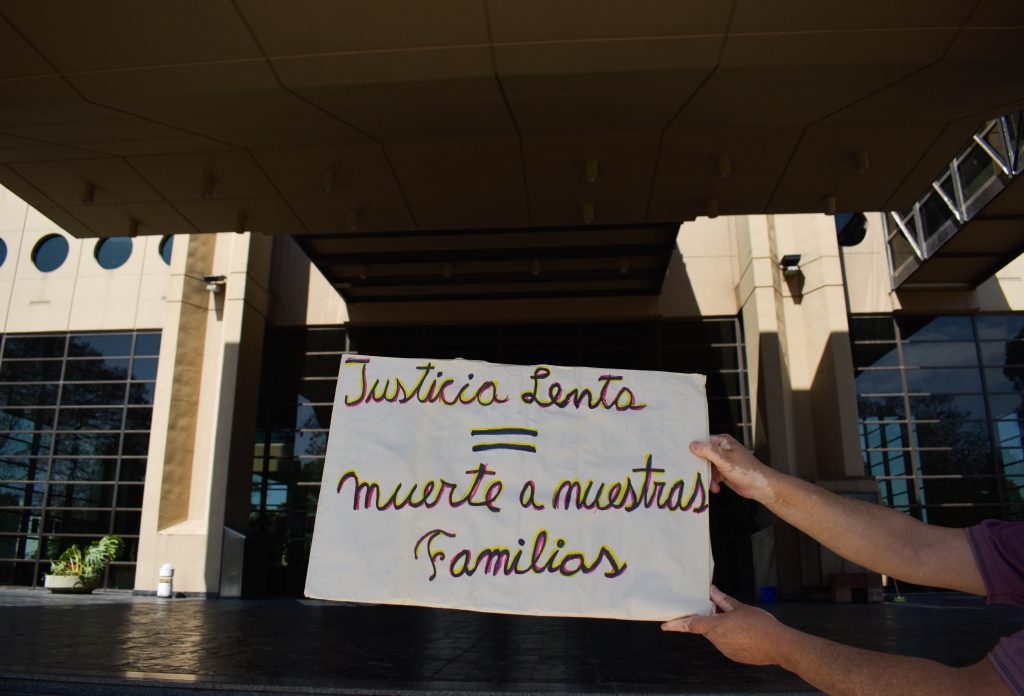 Justicia Lenta
=
muerte a nuestras
Familias